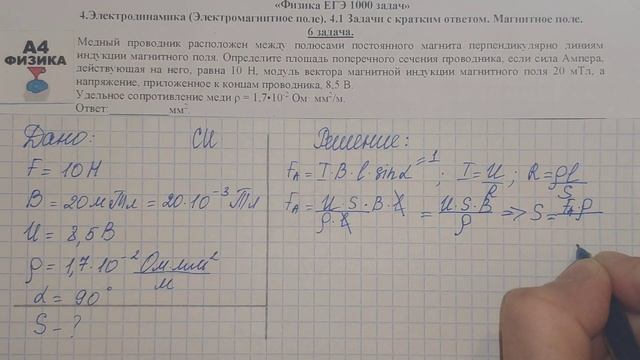 «Физика ЕГЭ 1000 задач»
4.Электродинамика (Электромагнитное поле). 4.1 Задачи с кратким ответом. Магнитное поле.
6 задача.
А4
ФИЗИКА
Медный проводник расположен между полюсами постоянного магнита перпендикулярно линиям
индукции магнитного поля. Определите площадь поперечного сечения проводника, если сила Ампера,
действующая на него, равна 10 Н, модуль вектора магнитной индукции магнитного поля 20 мТл, а
напряжение, приложенное к концам проводника, 8,5 В.
Удельное сопротивление меди ρ = 1,7•10⁻² Ом· мм²/м.
Ответ:____________мм².
Дано: СИ
F = 10 Н
B = 20 мТл = 20·10⁻³ Тл
U = 8,5 В
ρ = 1,7·10⁻² Ом·мм²/м
α = 90°
S - ?
Решение:
Fₐ = I·B·l·sinα =1 ; I = U/R ; R = ρl/S
Fₐ = U·S·B·l/ρ·l = U·S·B/ρ => S = Fₐ·ρ